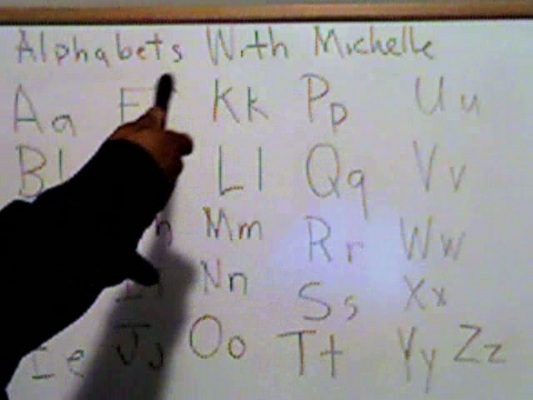 Alphabets With Michelle
Aa F Kk Pp Uu
B Ll Qq Vv
h Mm Rr Ww
Nn Ss Xx
e Jj Oo Tt Yy Zz